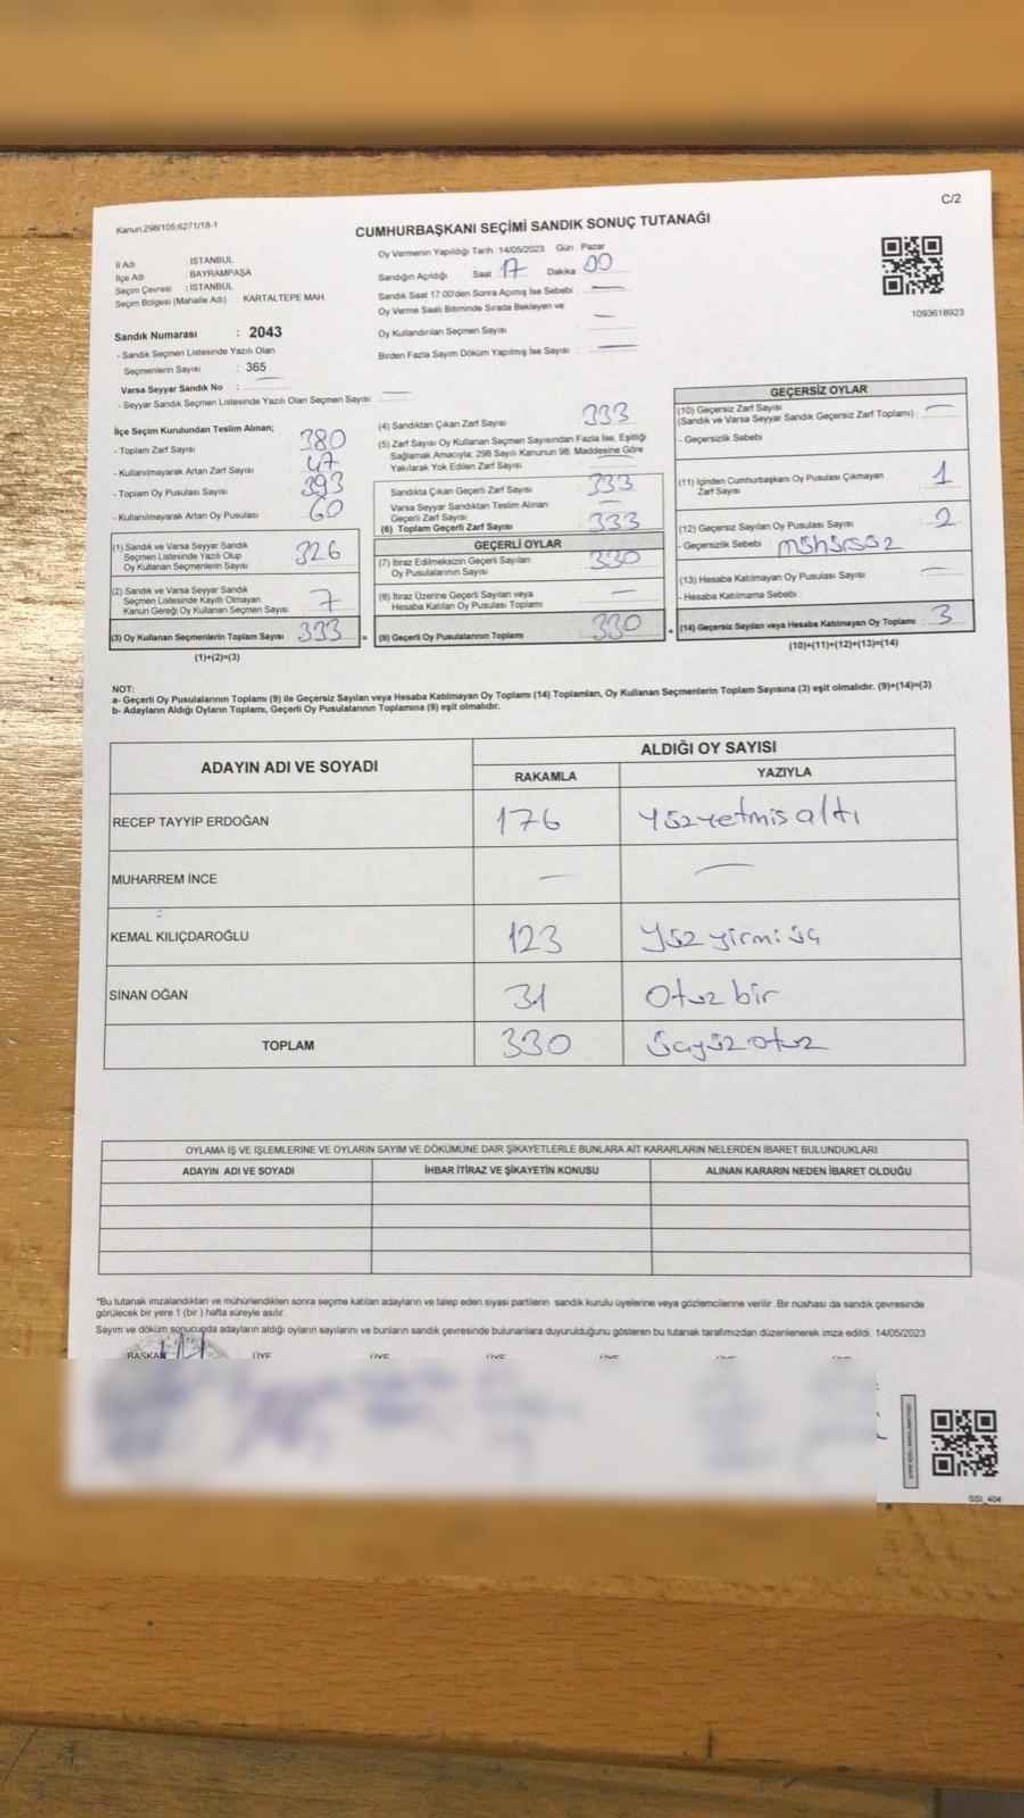 C/2
Kanun 298/105;6271/18-1
CUMHURBAŞKANI SEÇİMİ SANDIK SONUÇ TUTANAĞI
İl Adı : İSTANBUL
İlçe Adı : BAYRAMPAŞA
Seçim Çevresi : İSTANBUL
Seçim Bölgesi (Mahalle Adı) KARTALTEPE MAH.
Sandık Numarası : 2043
- Sandık Seçmen Listesinde Yazılı Olan
Seçmenlerin Sayısı : 365
Varsa Seyyar Sandık No :
- Seyyar Sandık Seçmen Listesinde Yazılı Olan Seçmen Sayısı
Oy Vermenin Yapıldığı Tarih :14/05/2023 Gün : Pazar
Sandığın Açıldığı Saat 17 Dakika 00
Sandık Saat 17.00'den Sonra Açılmış İse Sebebi
Oy Verme Saati Bitiminde Sırada Bekleyen ve
Oy Kullandırılan Seçmen Sayısı
Birden Fazla Sayım Döküm Yapılmış İse Sayısı
1093618923
İlçe Seçim Kurulundan Teslim Alınan;
- Toplam Zarf Sayısı 380
- Kullanılmayarak Artan Zarf Sayısı 47
- Toplam Oy Pusulası Sayısı 393
- Kullanılmayarak Artan Oy Pusulası 60
(1) Sandık ve Varsa Seyyar Sandık
Seçmen Listesinde Yazılı Olup
Oy Kullanan Seçmenlerin Sayısı 326
(2) Sandık ve Varsa Seyyar Sandık
Seçmen Listesinde Kayıtlı Olmayan
Kanun Gereği Oy Kullanan Seçmen Sayısı 7
(3) Oy Kullanan Seçmenlerin Toplam Sayısı 333 =
(1)+(2)=(3)
(4) Sandıktan Çıkan Zarf Sayısı 333
(5) Zarf Sayısı Oy Kullanan Seçmen Sayısından Fazla İse, Eşitliği
Sağlamak Amacıyla; 298 Sayılı Kanunun 98. Maddesine Göre
Yakılarak Yok Edilen Zarf Sayısı
Sandıkta Çıkan Geçerli Zarf Sayısı 333
Varsa Seyyar Sandıktan Teslim Alınan
Geçerli Zarf Sayısı
(6) Toplam Geçerli Zarf Sayısı 333
GEÇERLİ OYLAR
(7) İtiraz Edilmeksizin Geçerli Sayılan
Oy Pusulalarının Sayısı 330
(8) İtiraz Üzerine Geçerli Sayılan veya
Hesaba Katılan Oy Pusulası Toplamı
(9) Geçerli Oy Pusulalarının Toplamı 330 +
GEÇERSİZ OYLAR
(10) Geçersiz Zarf Sayısı
(Sandık ve Varsa Seyyar Sandık Geçersiz Zarf Toplamı)
- Geçersizlik Sebebi
(11) İçinden Cumhurbaşkanı Oy Pusulası Çıkmayan
Zarf Sayısı 1
(12) Geçersiz Sayılan Oy Pusulası Sayısı 2
- Geçersizlik Sebebi mühürsüz
(13) Hesaba Katılmayan Oy Pusulası Sayısı
- Hesaba Katılmama Sebebi
(14) Geçersiz Sayılan veya Hesaba Katılmayan Oy Toplamı 3
(10)+(11)+(12)+(13)=(14)
NOT:
a- Geçerli Oy Pusulalarının Toplamı (9) ile Geçersiz Sayılan veya Hesaba Katılmayan Oy Toplamı (14) Toplamları, Oy Kullanan Seçmenlerin Toplam Sayısına (3) eşit olmalıdır. (9)+(14)=(3)
b- Adayların Aldığı Oyların Toplamı, Geçerli Oy Pusulalarının Toplamına (9) eşit olmalıdır.
ADAYIN ADI VE SOYADI ALDIĞI OY SAYISI
RAKAMLA YAZIYLA
RECEP TAYYIP ERDOĞAN 176 Yüzyetmiş altı
MUHARREM İNCE
KEMAL KILIÇDAROĞLU 123 Yüz yirmi üç
SİNAN OĞAN 31 Otuz bir
TOPLAM 330 üçyüz otuz
OYLAMA İŞ VE İŞLEMLERİNE VE OYLARIN SAYIM VE DÖKÜMÜNE DAİR ŞİKAYETLERLE BUNLARA AİT KARARLARIN NELERDEN İBARET BULUNDUKLARI
ADAYIN ADI VE SOYADI İHBAR İTİRAZ VE ŞİKAYETİN KONUSU ALINAN KARARIN NEDEN İBARET OLDUĞU
"Bu tutanak imzalandıktan ve mühürlendikten sonra seçime katılan adayların ve talep eden siyasi partilerin sandık kurulu üyelerine veya gözlemcilerine verilir. Bir nüshası da sandık çevresinde
görülecek bir yere 1 (bir) hafta süreyle asılır.
Sayım ve döküm sonucunda adayların aldığı oyların sayılarını ve bunların sandık çevresinde bulunanlara duyurulduğunu gösteren bu tutanak tarafımızdan düzenlenerek imza edildi. 14/05/2023
BAŞKAN ÜYE ÜYE ÜYE ÜYE ÜYE ÜYE